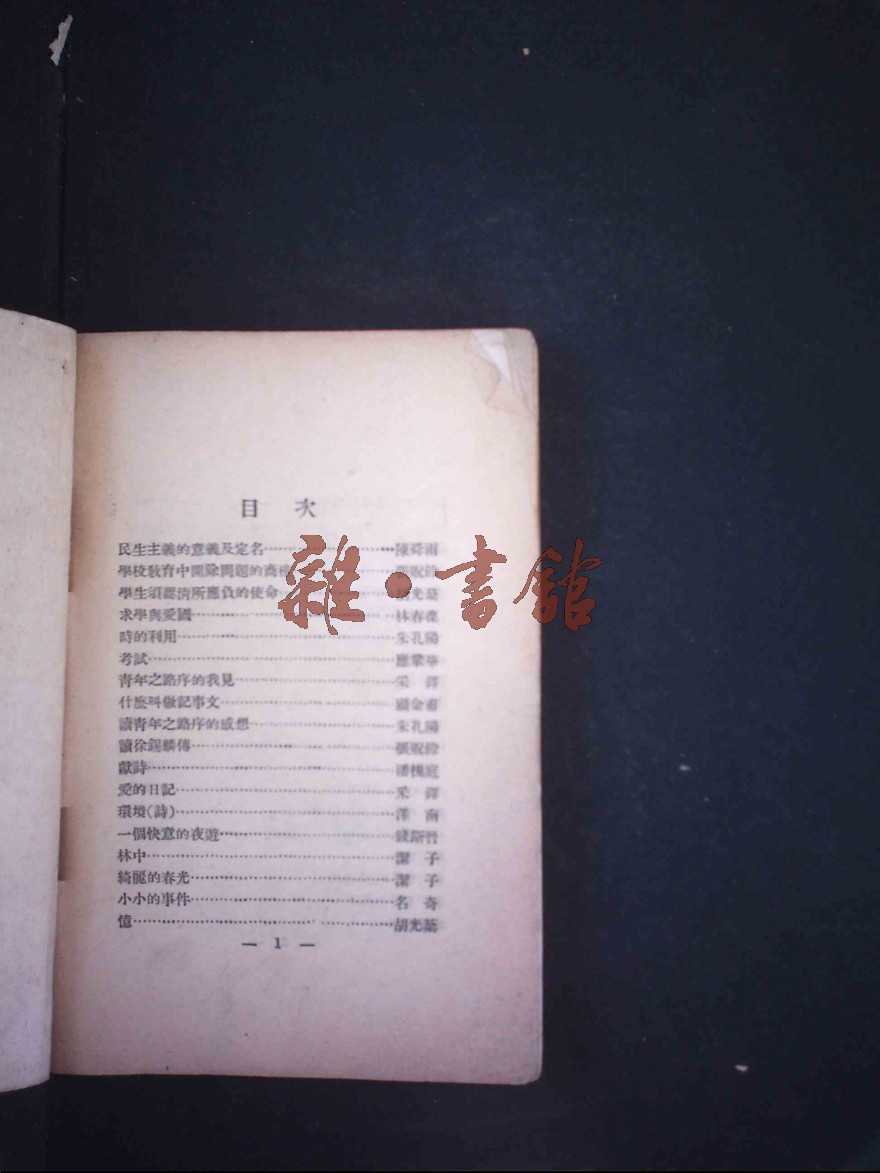 目 次
民生主義的意義及定名……陳舜雨
學校教育中開除問題的商
學生須認清所應負的使命 胡光
求學與愛國……林春
時的利用……朱孔陽
考試……應
青年之路序的我見……采
什麼叫做記事文……金
讀青年之路序的感想……朱孔陽
讀徐錫麟傳……張
獻詩……潘槐庭
愛的日記……采
環境(詩)……澤 南
一個快意的夜遊……斯
林中……潔 子
綺麗的春光……潔 子
小小的事件……名 奇
憶……胡光
— 1 —
雜·書館